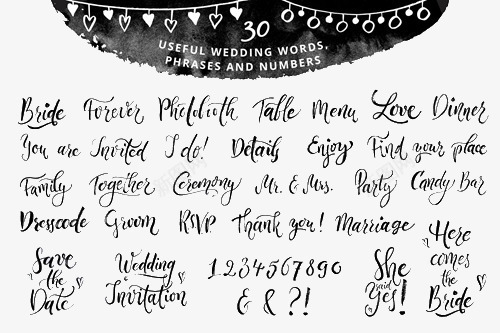 30
USEFUL WEDDING WORDS,
PHRASES AND NUMBERS
Bride Forever Photobooth Table Menu Love Dinner
You are Invited I do! Details Enjoy Find your place
Family Together Ceremony Mr. & Mrs. Party Candy Bar
Dresscode Groom RSVP Thank you! Marriage
Save
the
Date
Wedding
Invitation
1234567890
& & ?!
She
said
Yes!
Here
comes
the
Bride